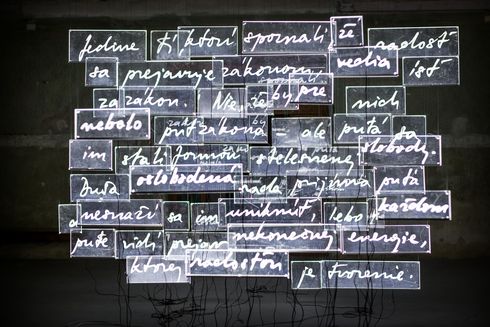 Jedine tí, ktorí spoznali, že radosť
sa prejavuje zákonom vedia ísť
za zákon. Nie, že by pre nich
nebolo pút zákona ale putá sa
im stali formou stelesnenej slobody.
Duša oslobodená rada prijíma putá
a nesnaží sa im uniknúť, lebo v každom
pute vidí prejav nekonečnej energie,
ktorej radosťou je tvorenie.